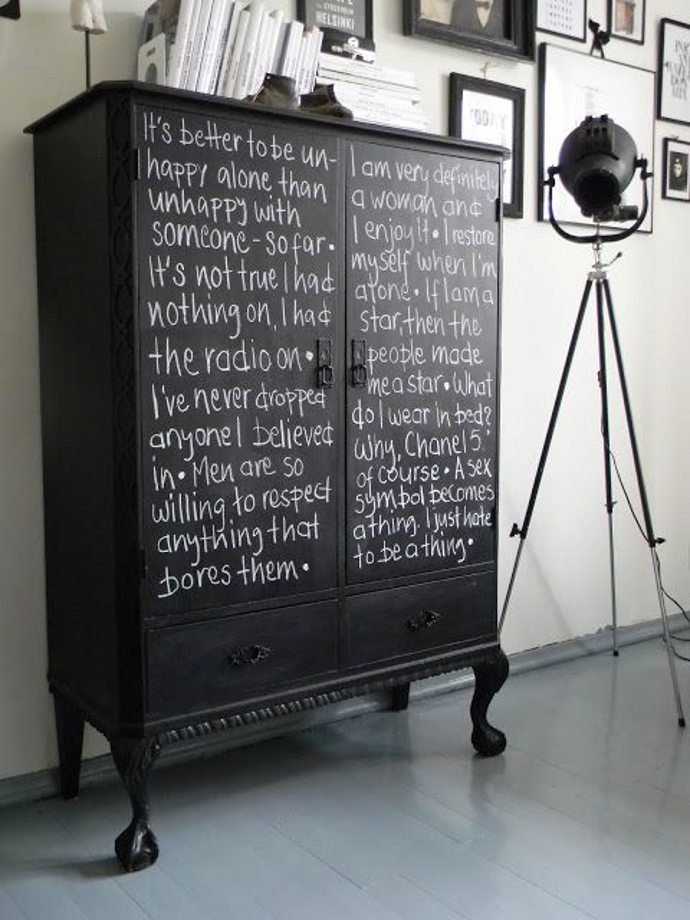 HELSINKI
TODAY
It's better to be un-
happy alone than
unhappy with
someone - so far •
It's not true I had
nothing on, I had
the radio on •
I've never dropped
anyone I believed
in • Men are so
willing to respect
anything that
bores them •
I am very definitely
a woman and
I enjoy it • I restore
myself when I'm
alone • If I am a
star, then the
people made
me a star • What
do I wear in bed?
Why, Chanel 5.
of course • A sex
symbol becomes
a thing. I just hate
to be a thing •